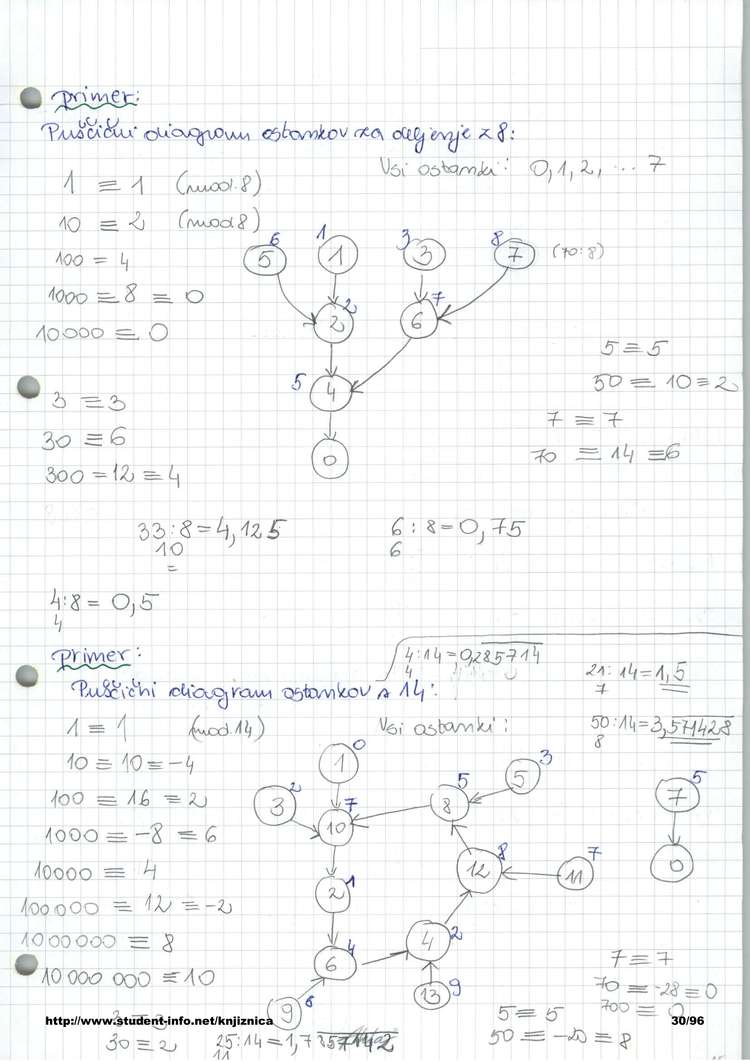 primer:
Puščični diagram ostankov za deljenje z 8:
Vsi ostanki: 0, 1, 2, ... 7
1 ≡ 1 (mod. 8)
10 ≡ 2 (mod 8)
100 = 4
1000 ≡ 8 ≡ 0
10000 ≡ 0
6 1 3 8
5 1 3 7 (70:8)
2 7
2 6
5 4
0
5 ≡ 5
50 ≡ 10 ≡ 2
7 ≡ 7
70 ≡ 14 ≡ 6
3 ≡ 3
30 ≡ 6
300 = 12 ≡ 4
33 : 8 = 4,125
10
=
6 : 8 = 0,75
6
4 : 8 = 0,5
4
primer:
4 : 14 = 0,285714
4
21 : 14 = 1,5
7
Puščični diagram ostankov z 14:
50 : 14 = 3,571428
8
1 ≡ 1 (mod. 14)
Vsi ostanki:
10 ≡ 10 ≡ -4
100 ≡ 16 ≡ 2
1000 ≡ -8 ≡ 6
10000 ≡ 4
100000 ≡ 12 ≡ -2
1000000 ≡ 8
10 000 000 ≡ 10
3 ≡ 3
30 ≡ 2
0
1
2 3
3 5
5 8
5 7
7 10
8 12
7 11
0
1 2
4 6
2 4
6 9
9 13
7 ≡ 7
70 ≡ -28 ≡ 0
700 ≡ 0
5 ≡ 5
50 ≡ -20 ≡ 8
25 : 14 = 1,7
11
http://www.student-info.net/knjiznica
30/96